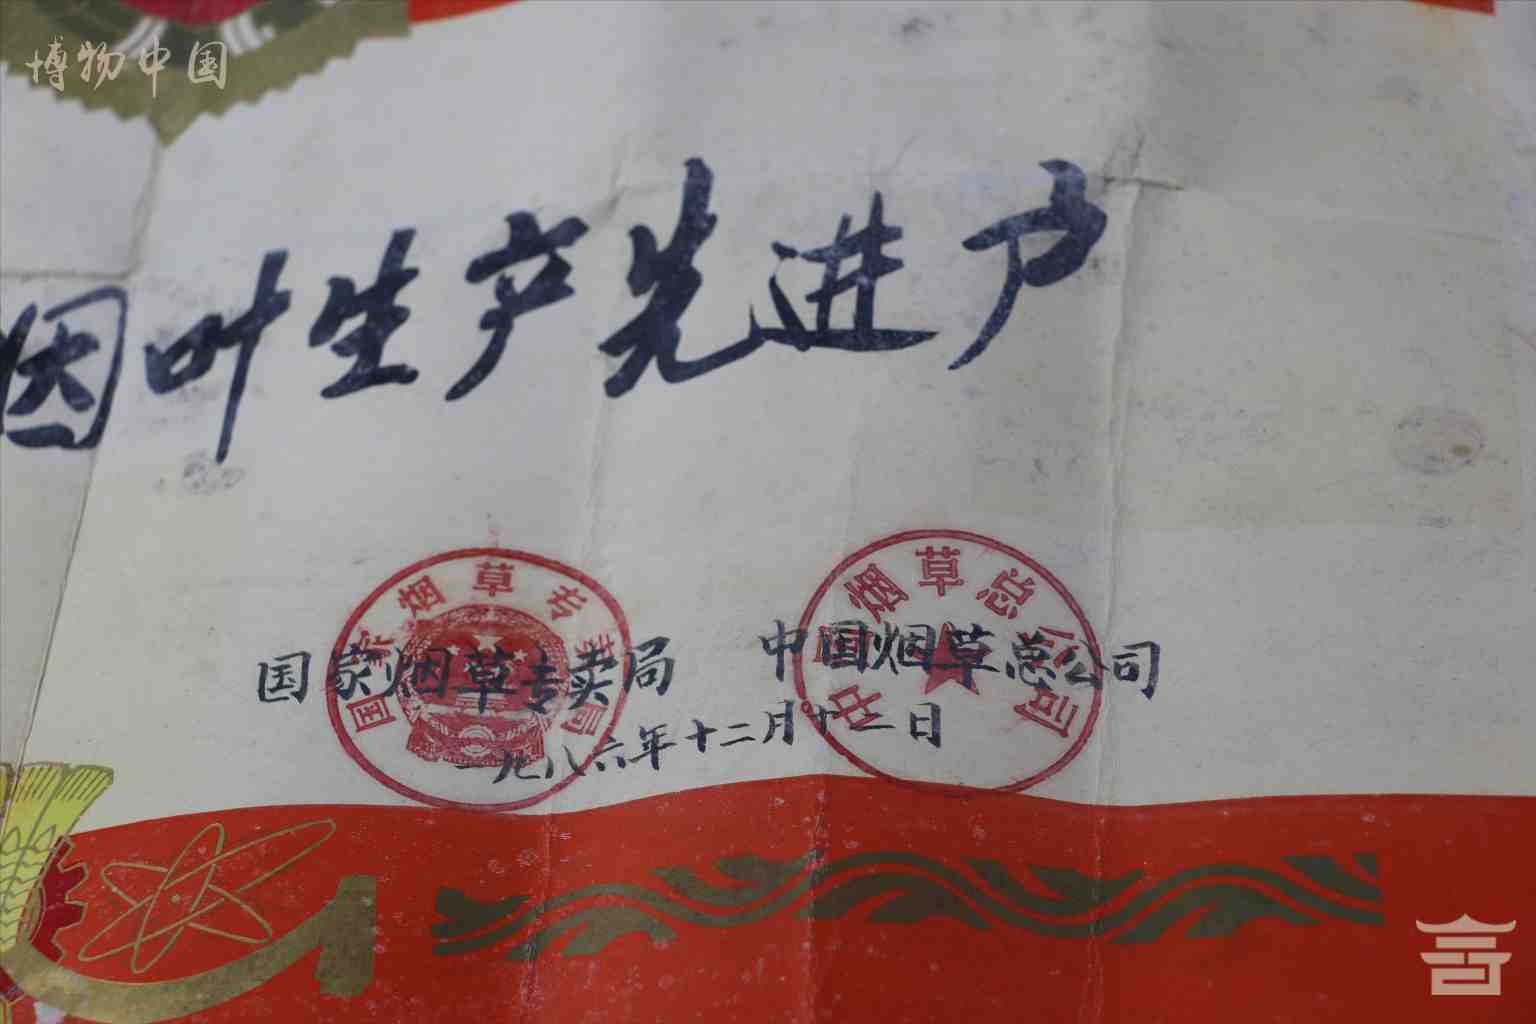 博物中国
烟叶生产先进户
国家烟草专卖局
中国烟草总公司
国家烟草专卖局 中国烟草总公司
一九八六年十二月十二日